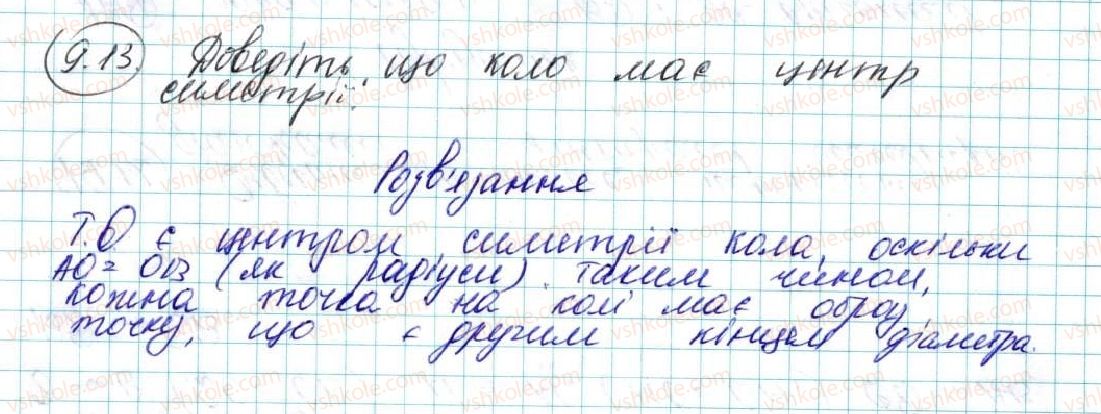 9.13 Доведіть, що коло має центр
симетрії.
Розв'язання
Т.О є центром симетрії кола, оскільки
АО = ОВ (як радіуси). Таким чином,
кожна точка на колі має образ,
точку, що є другим кінцем діаметра.